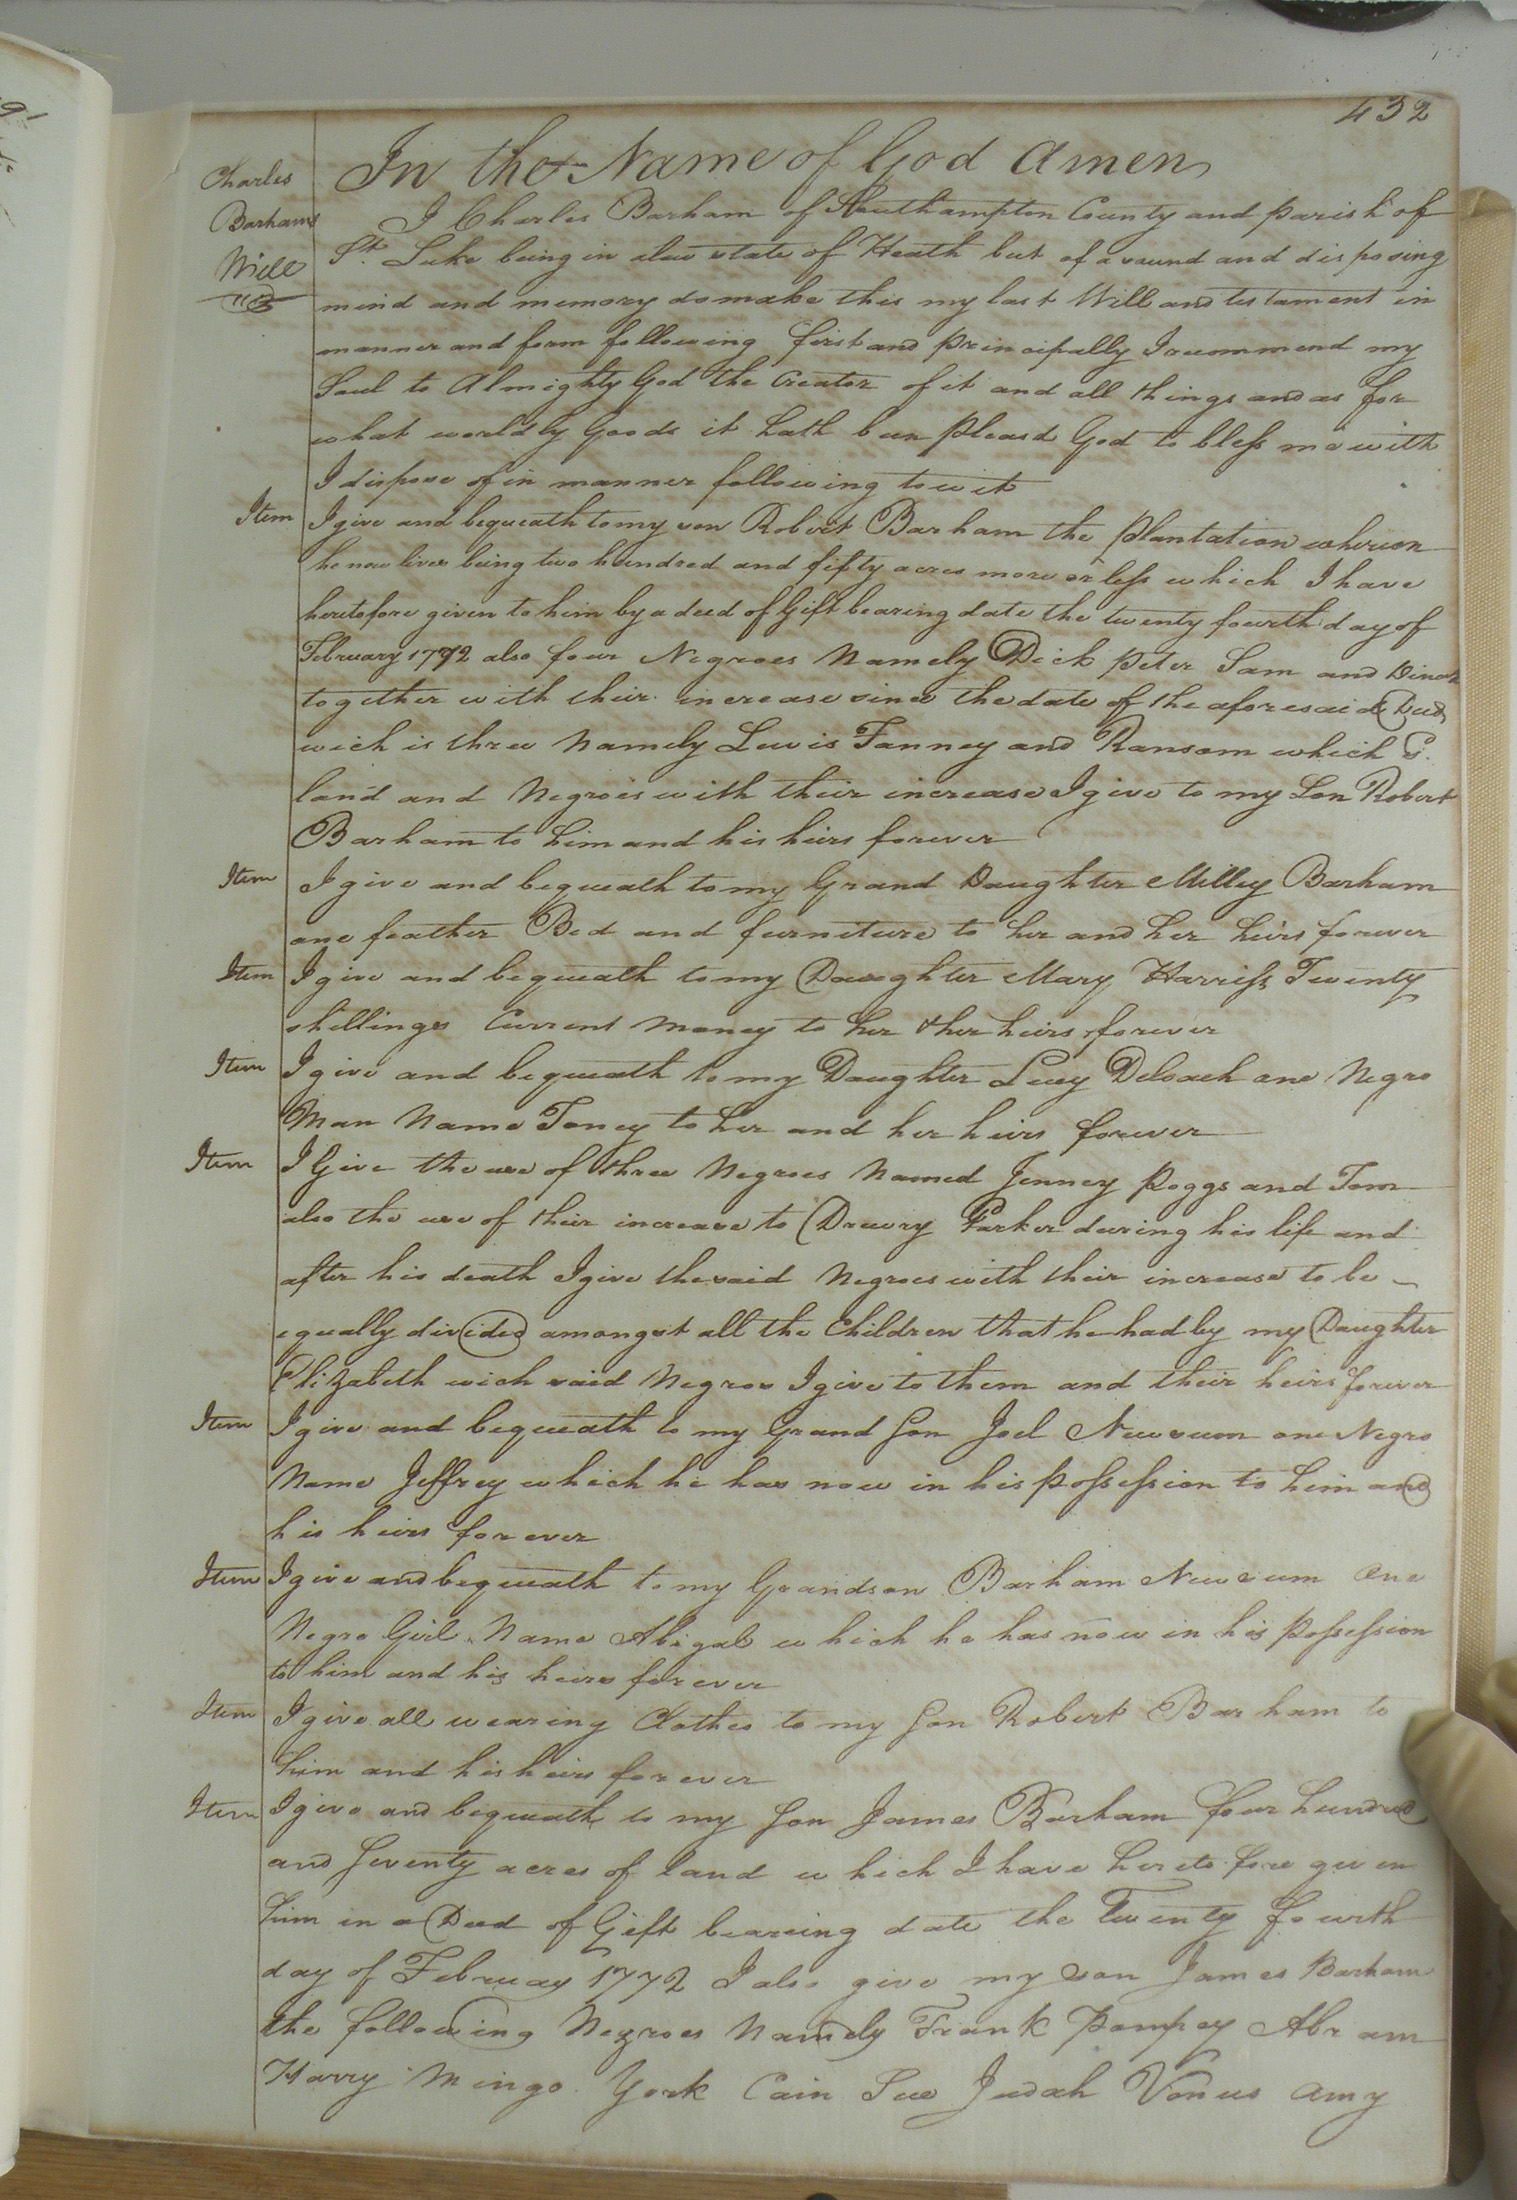 432
Charles
Barhams
Will
In the Name of God Amen
I Charles Barham of Southampton County and parish of
St. Luke being in a low state of Heath but of a sound and disposing
mind and memory do make this my last Will and testament in
manner and form following first and principally I recommend my
Soul to Almighty God the Creator of it and all things and as for
what worldly Goods it hath been pleasd God to bless me with
I dispose of in manner following to wit
Item I give and bequeath to my son Robert Barham the plantation whereon
he now lives being two hundred and fifty acres more or less which I have
heretofore given to him by a deed of Gift bearing date the twenty fourth day of
February 1772 also four Negroes Namely Dick Peter Sam and Dinah
together with their increase since the date of the aforesaid Deed
wich is three Namely Lewis Fanney and Ransom which sd.
land and Negroes with their increase I give to my Son Robert
Barham to him and his heirs forever
Item I give and bequeath to my Grand Daughter Milley Barham
one feather Bed and furniture to her and her heirs forever
Item I give and bequeath to my Daughter Mary Harriss Twenty
shillings Current Money to her & her heirs forever
Item I give and bequeath to my Daughter Lucy Deloach one Negro
Man Name Toney to her and her heirs forever
Item I Give the use of three Negroes Named Jenney Poggs and Tom
also the use of their increase to Drewry Parker during his life and
after his death I give the said Negroes with their increase to be
equally divided amongst all the Children that he had by my Daughter
Elizabeth wich said Negros I give to them and their heirs forever
Item I give and bequeath to my Grand Son Joel Newsum one Negro
Name Jeffrey which he has now in his possession to him and
his heirs forever
Item I give and bequeath to my Grandson Barham Newsum One
Negro Girl Name Abigal which he has now in his possession
to him and his heirs forever
Item I give all wearing Clothes to my Son Robert Barham to
him and his heirs forever
Item I give and bequeath to my Son James Barham four hundred
and Seventy acres of land which I have heretofore given
him in a Deed of Gift bearing date the Twenty fourth
day of February 1772 I also give my son James Barham
the following Negroes Namely Frank Pompey Abram
Harry Mingo York Cain Sue Judah Venus Amy